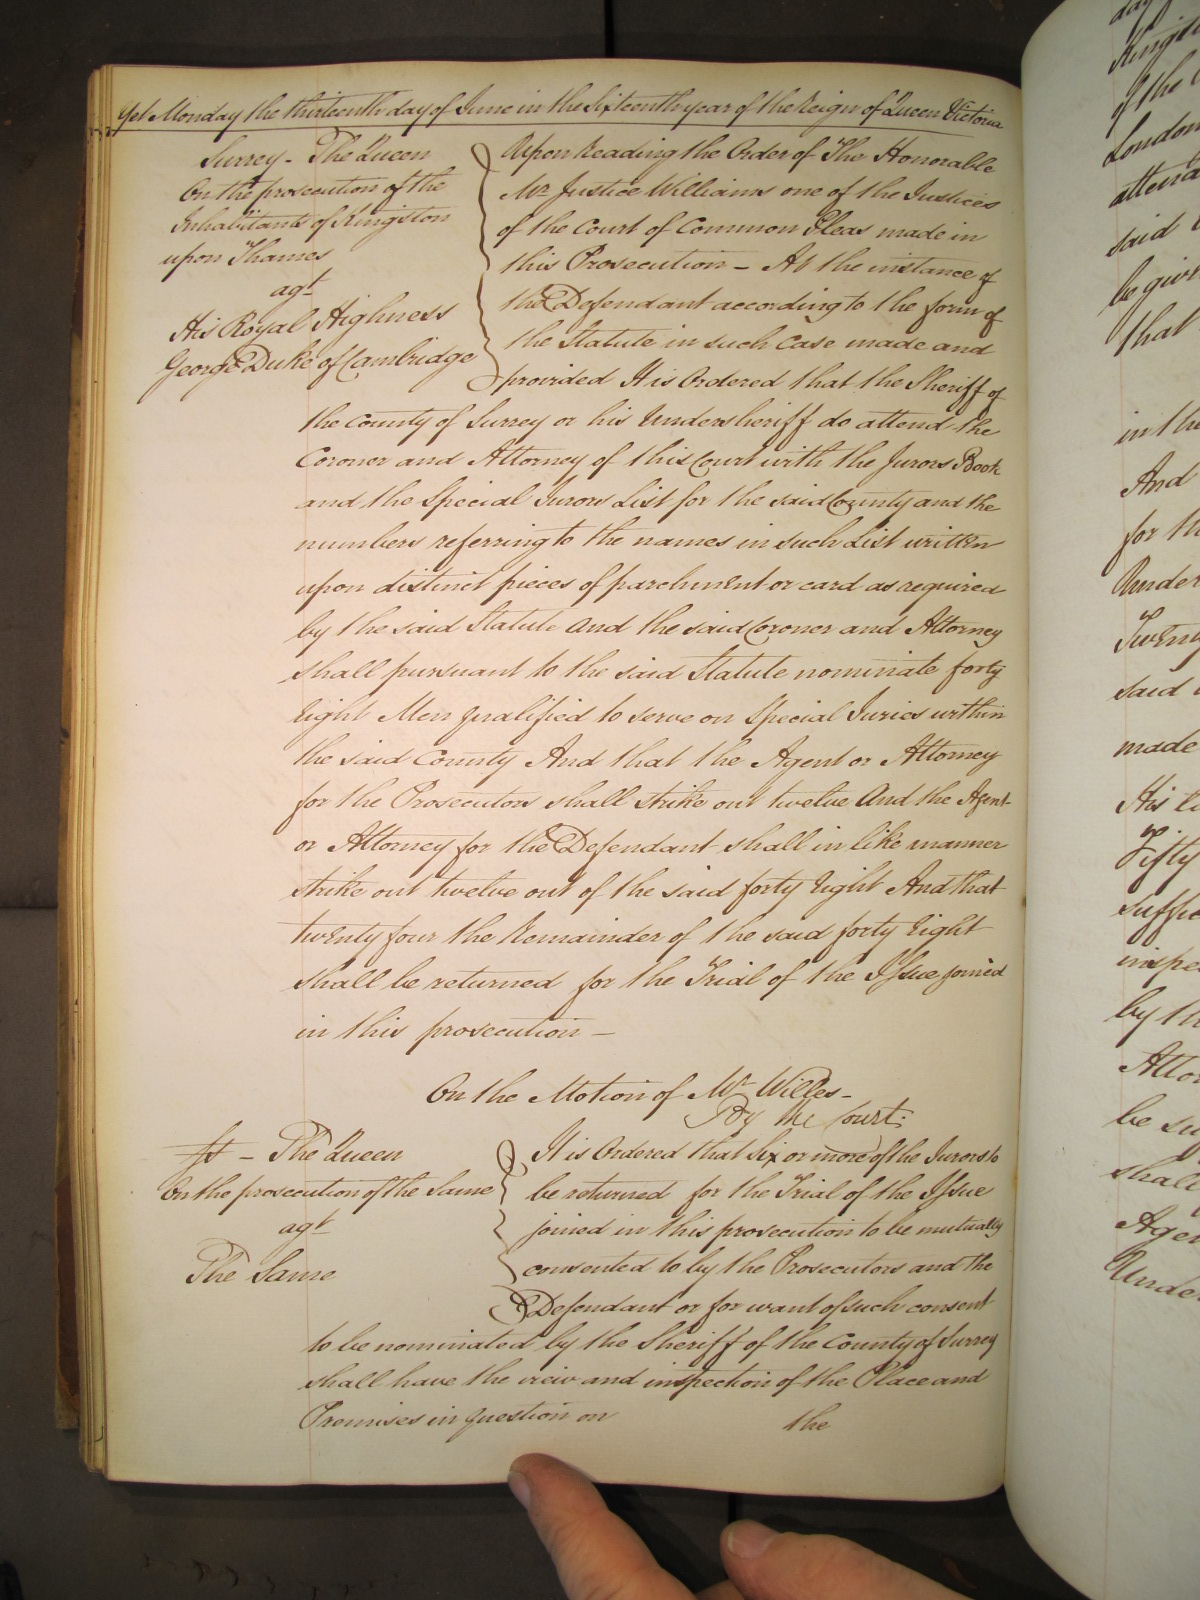 Yet Monday the thirteenth day of June in the Sixteenth year of the Reign of Queen Victoria
Surrey - The Queen
On the prosecution of the
Inhabitants of Kingston
upon Thames
agt
His Royal Highness
George Duke of Cambridge
Upon Reading the Order of The Honorable
Mr Justice Williams one of the Justices
of the Court of Common Pleas made in
this Prosecution - At the instance of
the Defendant according to the form of
the Statute in such Case made and
provided It is Ordered that the Sheriff of
the County of Surrey or his Undersheriff do attend the
Coroner and Attorney of this Court with the Jurors Book
and the Special Jurors List for the said County and the
numbers referring to the names in such List written
upon distinct pieces of parchment or card as required
by the said Statute And the said Coroner and Attorney
shall pursuant to the said Statute nominate forty
Eight Men qualified to serve on Special Juries within
the said County And that the Agent or Attorney
for the Prosecutors shall strike out twelve And the Agent
or Attorney for the Defendant shall in like manner
strike out twelve out of the said forty Eight And that
twenty four the Remainder of the said forty Eight
shall be returned for the Trial of the Issue joined
in this prosecution -
On the Motion of Mr Willes -
By the Court.
- The Queen
On the prosecution of the Same
agt
The Same
It is Ordered that Six or more of the Jurors to
be returned for the Trial of the Issue
joined in this prosecution to be mutually
consented to by the Prosecutors and the
Defendant or for want of such consent
to be nominated by the Sheriff of the County of Surrey
shall have the view and inspection of the Place and
Premises in question on
the
day
Kingst
of the
London
attend
said
be give
that
in the
And
for th
Under
Twenty
said
made
His
Fifty
suffic
inspe
by th
Attor
be su
shall
Agen
Under